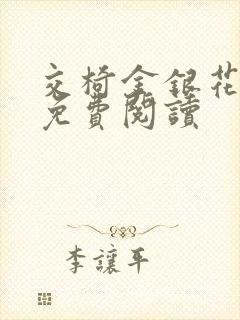 交椅金銀花
免費閱讀
李讓平